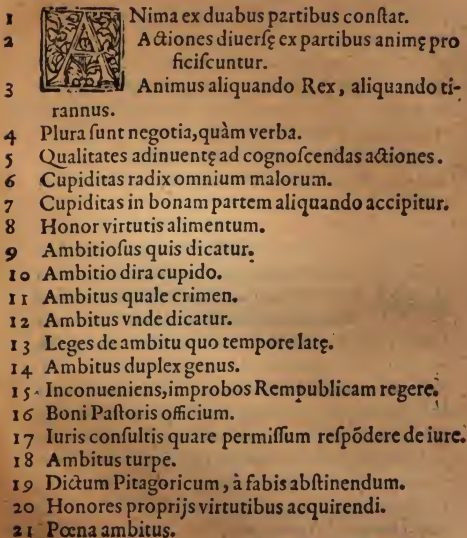 1 ANima ex duabus partibus conſtat.
2 Actiones diuerſę ex partibus animę pro
ficiſcuntur.
3 Animus aliquando Rex, aliquando ti-
rannus.
4 Plura ſunt negotia, quàm verba.
5 Qualitates adinuentę ad cognoſcendas actiones.
6 Cupiditas radix omnium malorum.
7 Cupiditas in bonam partem aliquando accipitur.
8 Honor virtutis alimentum.
9 Ambitioſus quis dicatur.
10 Ambitio dira cupido.
11 Ambitus quale crimen.
12 Ambitus vnde dicatur.
13 Leges de ambitu quo tempore latę.
14 Ambitus duplex genus.
15 Inconueniens, improbos Rempublicam regere.
16 Boni Paſtoris officium.
17 Iuris conſultis quare permiſſum reſpõdere de iure.
18 Ambitus turpe.
19 Dictum Pitagoricum, à fabis abſtinendum.
20 Honores proprijs virtutibus acquirendi.
21 Pœna ambitus.